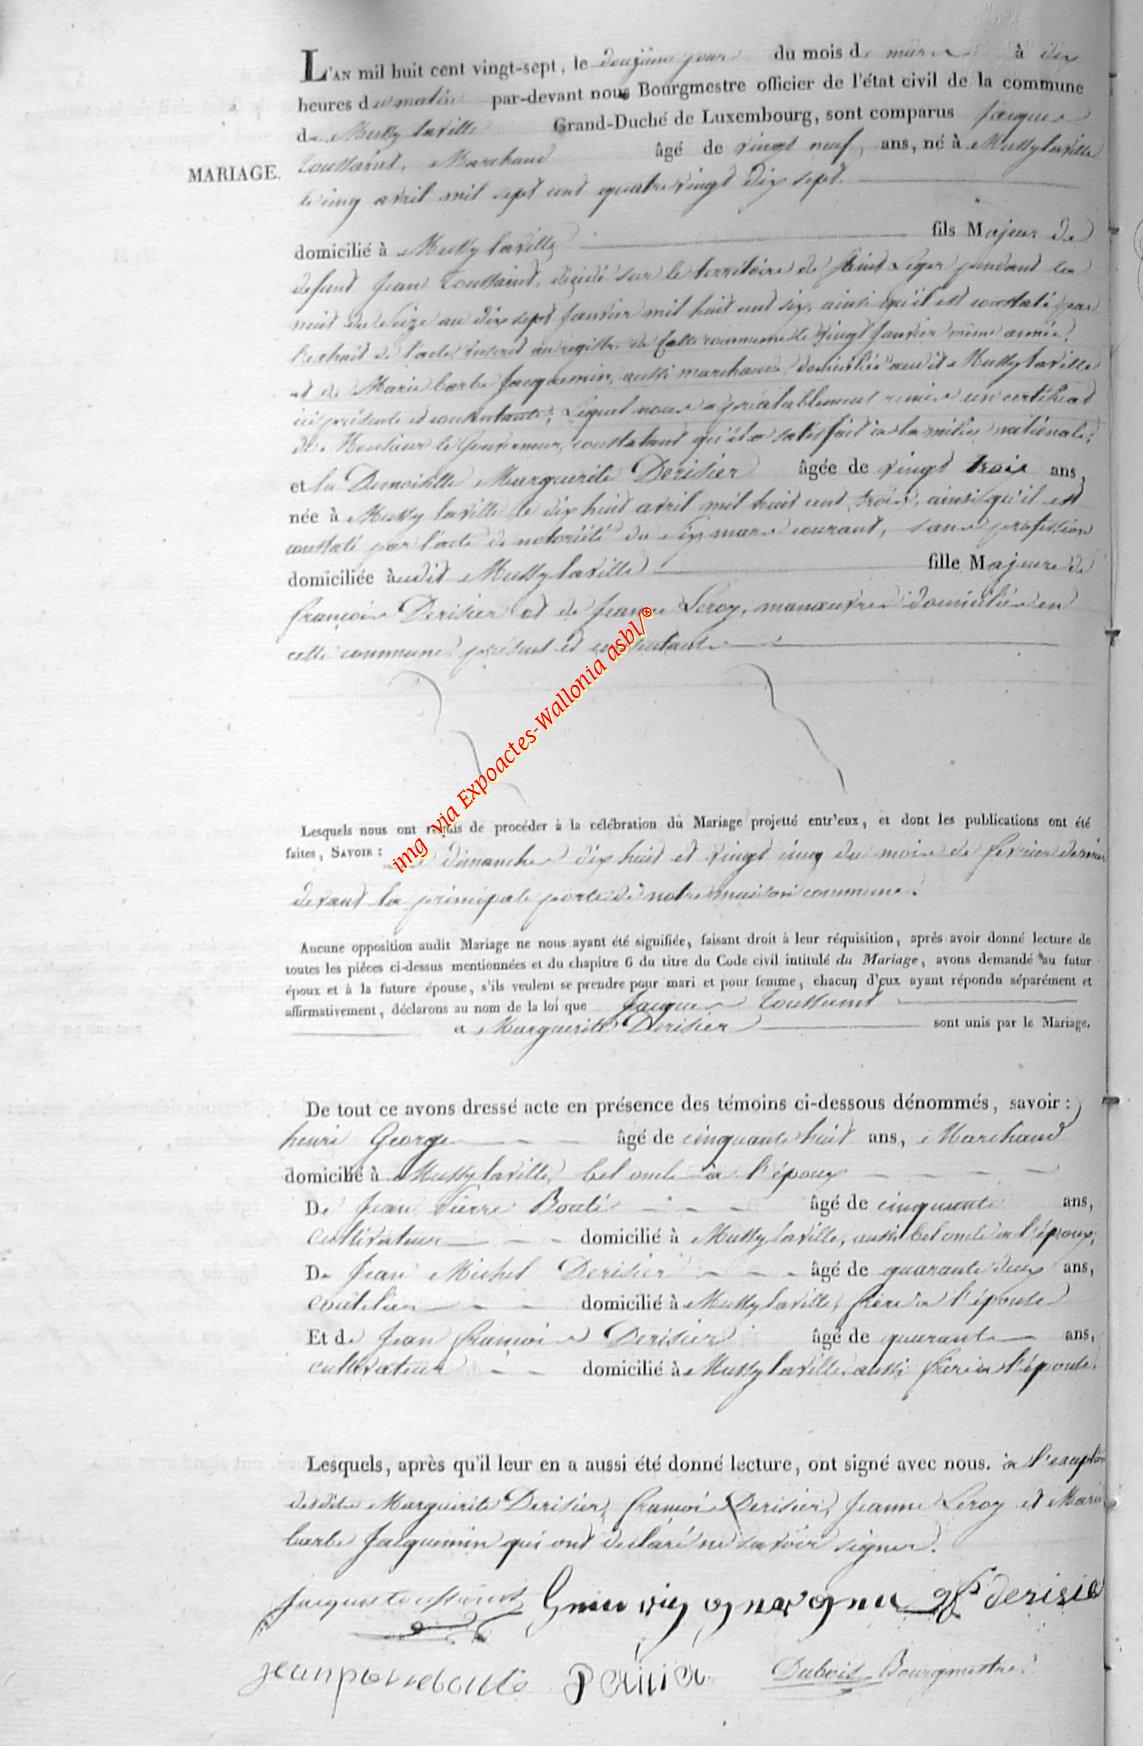 L'AN mil huit cent vingt-sept, le douzième jour du mois de mars à dix
heures du matin par-devant nous Bourgmestre officier de l'état civil de la commune
de Mussy laville Grand-Duché de Luxembourg, sont comparus Jacques
MARIAGE. Toussaint, Marchand âgé de vingt neuf, ans, né à Mussy laville
le cinq avril mil sept cent quatre vingt dix sept.
domicilié à Mussy laville fils Majeur de
defunt Jean Toussaint, décédé sur le territoire de Saint Leger pendant la
nuit du seize au dix sept Janvier mil huit cent six, ainsi qu'il est constaté par
l'extrait de l'acte, inscrit au registre de cette commune le vingt Janvier même année,
et de Marie barbe Jacquemin, aussi marchande, domiciliée audit Mussy laville
ici présente et consentante; Lequel nous a préalablement remis un certificat
de Monsieur le Gouverneur, constatant qu'il a satisfait à la milice nationale;
et la Demoiselle Marguerite Derisier âgée de vingt trois ans,
née à Mussy laville le dix huit avril mil huit cent trois, ainsi qu'il est
constaté par l'acte de notoriété du six mars courant, sans profession
domiciliée audit Mussy laville fille Majeure de
françois Derisier et de Jeanne Leroy, manœuvres domiciliés en
cette commune, présents et consentants
Lesquels nous ont requis de procéder à la célébration du Mariage projetté entr'eux, et dont les publications ont été
faites, SAVOIR : Les dimanches dix huit et vingt cinq du mois de fevrier dernier
devant la principale porte de notre maison commune.
Aucune opposition audit Mariage ne nous ayant été signifiée, faisant droit à leur réquisition, après avoir donné lecture de
toutes les pièces ci-dessus mentionnées et du chapitre 6 du titre du Code civil intitulé du Mariage, avons demandé au futur
époux et à la future épouse, s'ils veulent se prendre pour mari et pour femme, chacun d'eux ayant répondu séparément et
affirmativement, déclarons au nom de la loi que Jacques Toussaint
et Marguerite Derisier sont unis par le Mariage.
De tout ce avons dressé acte en présence des témoins ci-dessous dénommés, savoir :
henri George âgé de cinquante huit ans, Marchand
domicilié à Mussy laville, bel oncle à l'époux
De Jean Pierre Boulé âgé de cinquante ans,
cultivateur domicilié à Mussy laville, aussi bel oncle à l'époux,
De Jean Michel Derisier âgé de quarante deux ans,
coutelier domicilié à Mussy laville, frère à l'épouse
Et de Jean françois Derisier âgé de quarante ans,
cultivateur domicilié à Mussy laville, aussi frère à l'épouse.
Lesquels, après qu'il leur en a aussi été donné lecture, ont signé avec nous. à l'exception
desdits Marguerite Derisier, françois Derisier, Jeanne Leroy et Marie
barbe Jacquemin qui ont declaré ne savoir signer.
jacques toussaint derisie
jeanpierreboulé Dubois Bourgmestre
img via Expoactes-Wallonia asbl/©